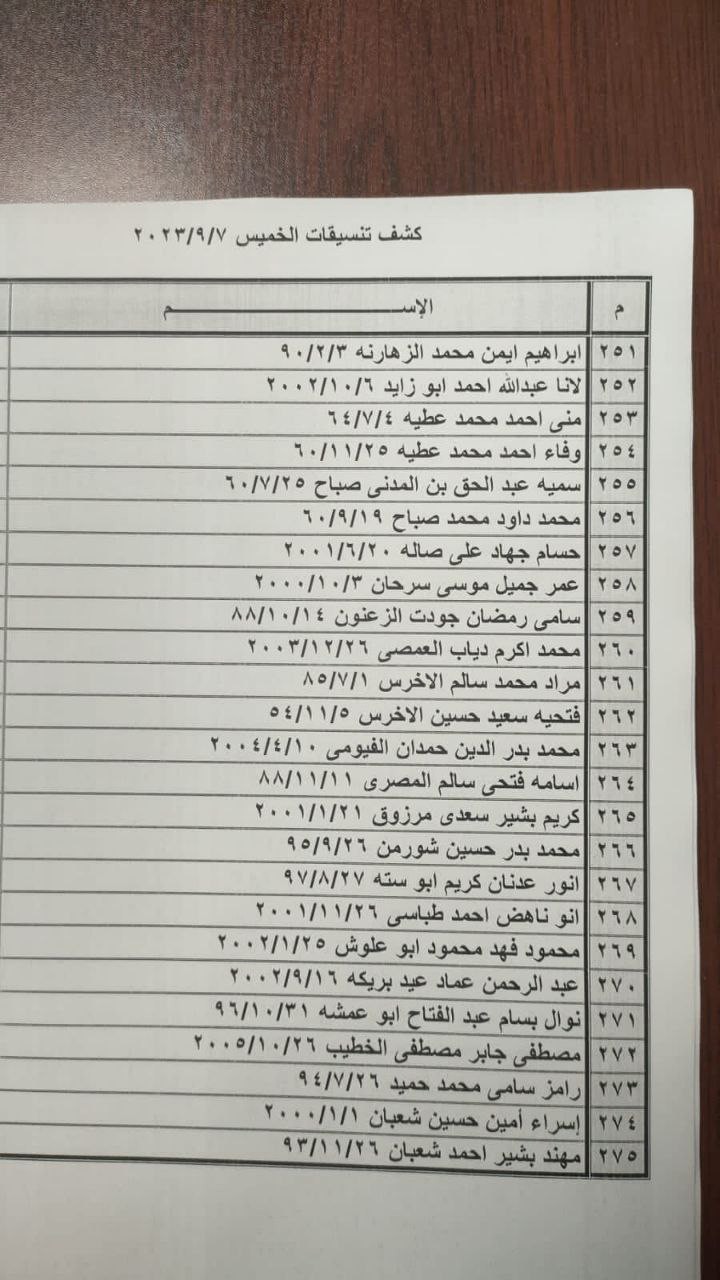 كشف تنسيقات الخميس ٢٠٢٣/٩/٧
م الإســـــــــــــم
٢٥١ ابراهيم ايمن محمد الزهارنه ٩٠/٢/٣
٢٥٢ لانا عبدالله احمد ابو زايد ٢٠٠٢/١٠/٦
٢٥٣ منى احمد محمد عطيه ٦٤/٧/٤
٢٥٤ وفاء احمد محمد عطيه ٦٠/١١/٢٥
٢٥٥ سميه عبد الحق بن المدنى صباح ٦٠/٧/٢٥
٢٥٦ محمد داود محمد صباح ٦٠/٩/١٩
٢٥٧ حسام جهاد على صاله ٢٠٠١/٦/٢٠
٢٥٨ عمر جميل موسى سرحان ٢٠٠٠/١٠/٣
٢٥٩ سامى رمضان جودت الزعنون ٨٨/١٠/١٤
٢٦٠ محمد اكرم دياب العمصى ٢٠٠٣/١٢/٢٦
٢٦١ مراد محمد سالم الاخرس ٨٥/٧/١
٢٦٢ فتحيه سعيد حسين الاخرس ٥٤/١١/٥
٢٦٣ محمد بدر الدين حمدان الفيومى ٢٠٠٤/٤/١٠
٢٦٤ اسامه فتحى سالم المصرى ٨٨/١١/١١
٢٦٥ كريم بشير سعدى مرزوق ٢٠٠١/١/٢١
٢٦٦ محمد بدر حسين شورمن ٩٥/٩/٢٦
٢٦٧ انور عدنان كريم ابو سته ٩٧/٨/٢٧
٢٦٨ انو ناهض احمد طباسى ٢٠٠١/١١/٢٦
٢٦٩ محمود فهد محمود ابو علوش ٢٠٠٢/١/٢٥
٢٧٠ عبد الرحمن عماد عيد بريكه ٢٠٠٢/٩/١٦
٢٧١ نوال بسام عبد الفتاح ابو عمشه ٩٦/١٠/٣١
٢٧٢ مصطفى جابر مصطفى الخطيب ٢٠٠٥/١٠/٢٦
٢٧٣ رامز سامى محمد حميد ٩٤/٧/٢٦
٢٧٤ إسراء أمين حسين شعبان ٢٠٠٠/١/١
٢٧٥ مهند بشير احمد شعبان ٩٣/١١/٢٦